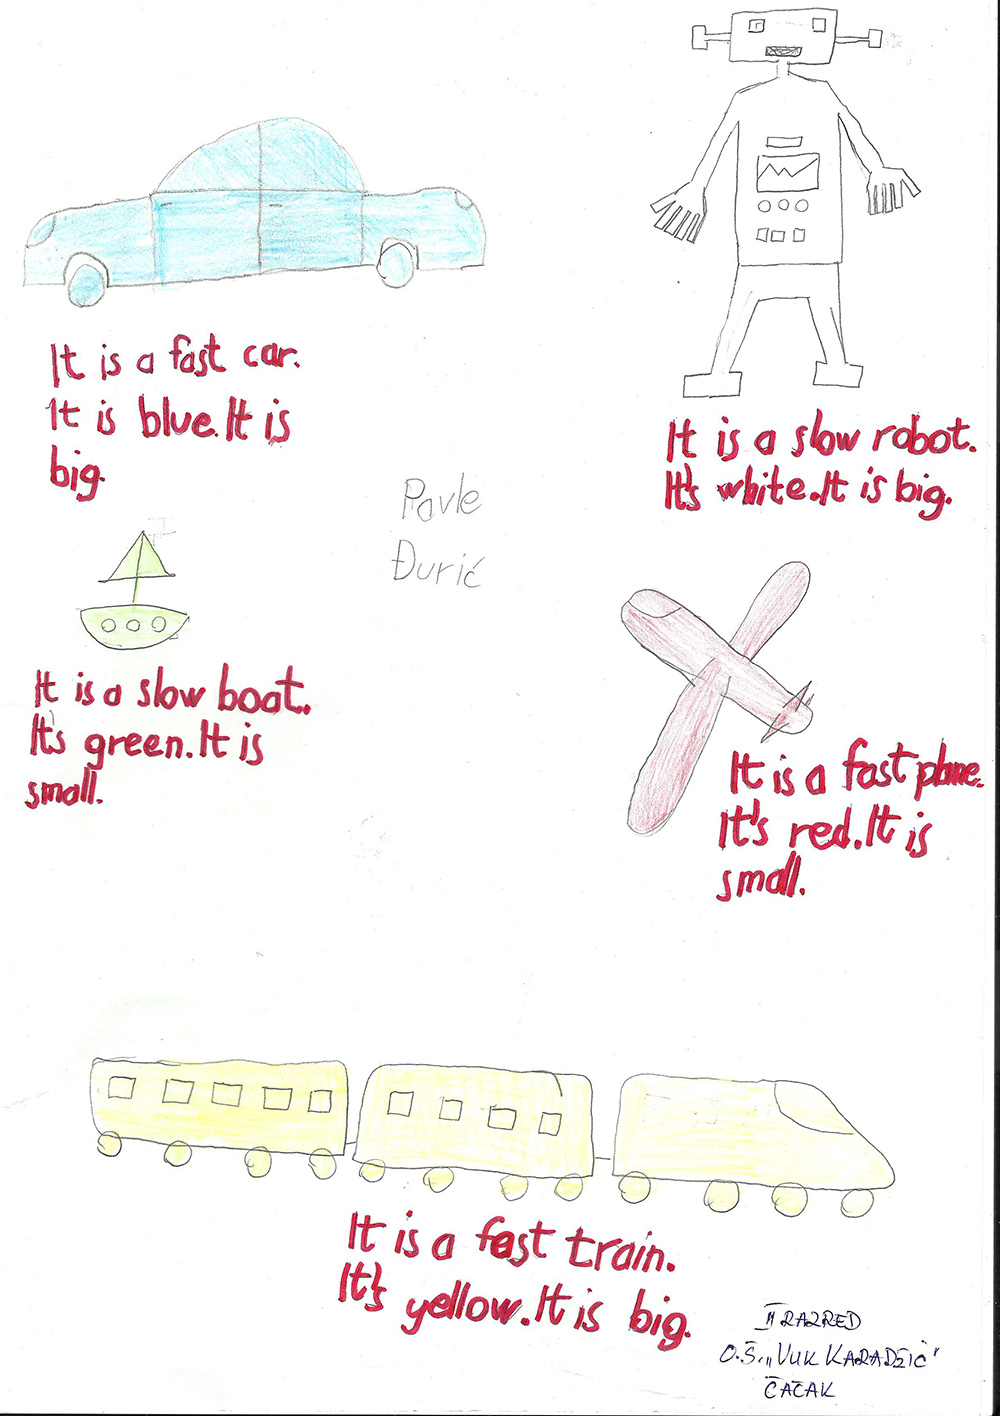 It is a fast car.
It is blue. It is
big.
It is a slow robot.
It's white. It is big.
Pavle
Đurić
It is a slow boat.
It's green. It is
small.
It is a fast plane.
It's red. It is
small.
It is a fast train.
It's yellow. It is big.
II RAZRED
O.Š. „VUK KARADŽIĆ"
ČAČAK